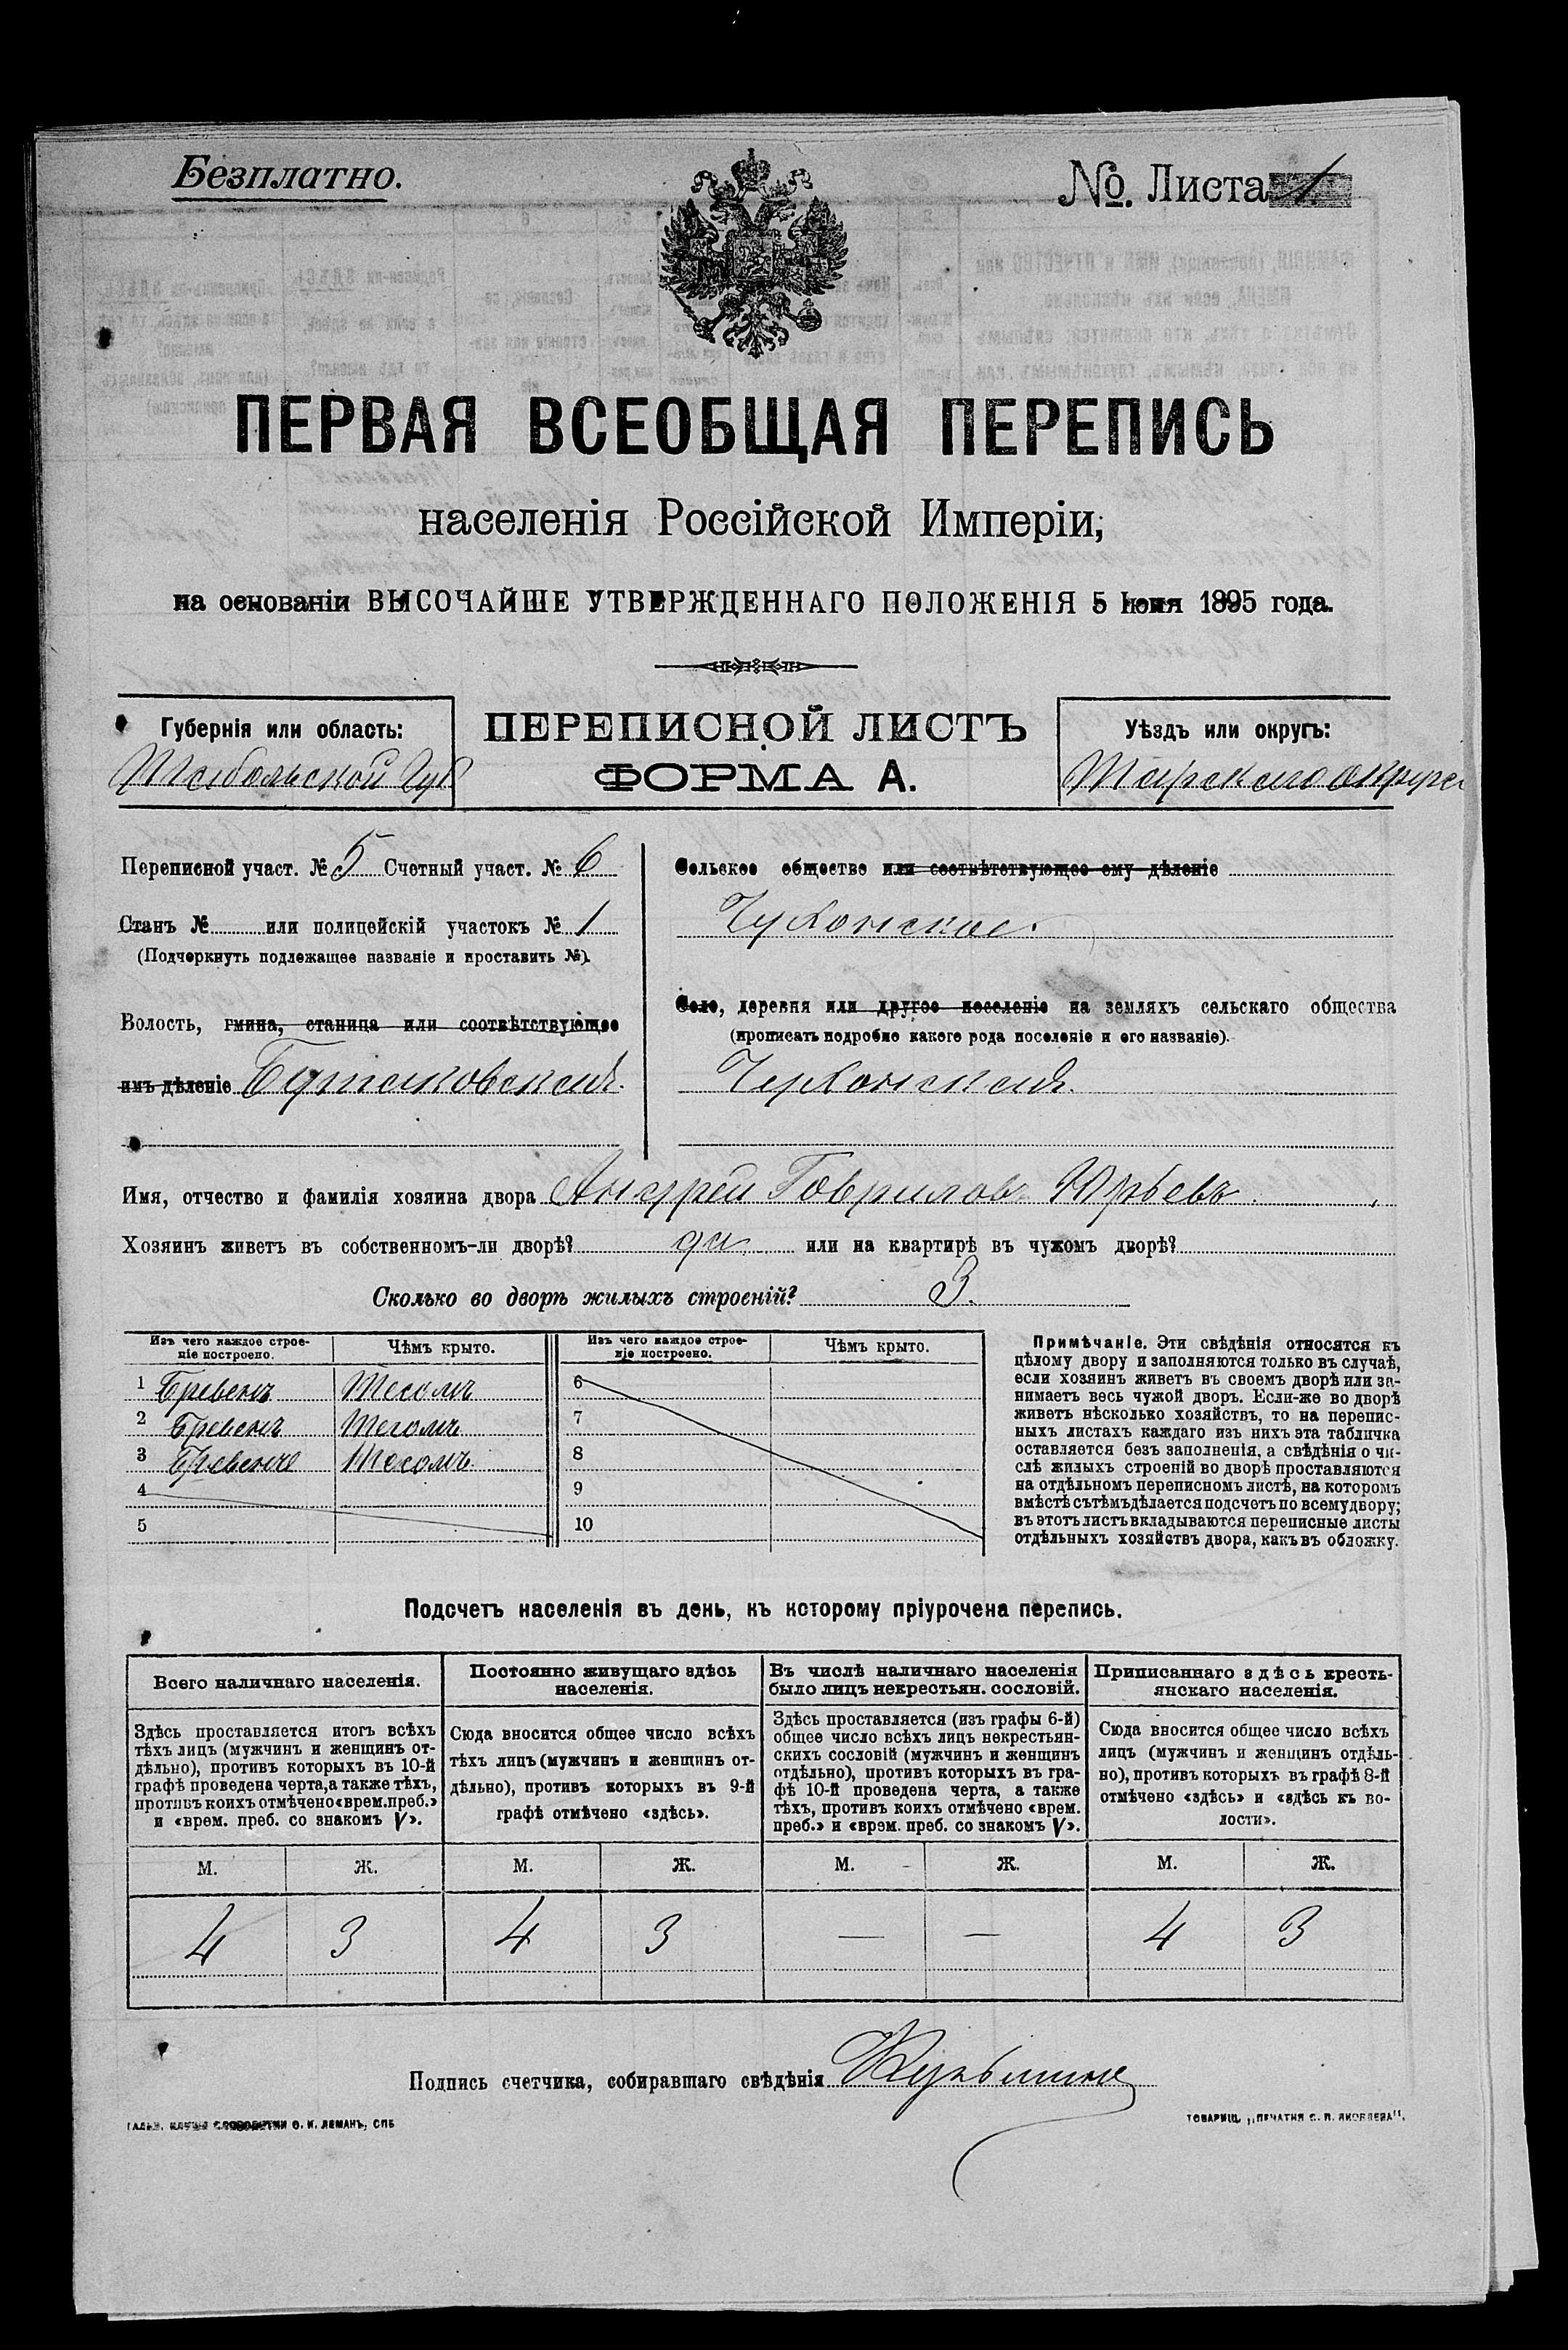 Безплатно.
№. Листа 1.
ПЕРВАЯ ВСЕОБЩАЯ ПЕРЕПИСЬ
населенія Россійской Имперіи,
на основаніи ВЫСОЧАЙШЕ УТВЕРЖДЕННАГО ПОЛОЖЕНІЯ 5 Іюня 1895 года.
Губернія или область:
Тобольской Губ
ПЕРЕПИСНОЙ ЛИСТЪ
ФОРМА А.
Уѣздъ или округъ:
Тарскаго округа
Переписной участ. № 5 Счетный участ. № 6
Станъ № или полицейскій участокъ № 1
(Подчеркнуть подлежащее названіе и проставить №).
Волость, гмина, станица или соотвѣтствующее
имъ дѣленіе Бутаковская.
Сельское общество или соотвѣтствующее ему дѣленіе
Село, деревня или другое поселеніе на земляхъ сельскаго общества
(прописать подробно какого рода поселеніе и его названіе).
Имя, отчество и фамилія хозяина двора Андрей Гаврилов Юрьевъ
Хозяинъ живетъ въ собственномъ-ли дворѣ? да или на квартирѣ въ чужомъ дворѣ?
Сколько во дворѣ жилыхъ строеній? 3.
Изъ чего каждое строе-
ніе построено.
Чѣмъ крыто.
Изъ чего каждое строе-
ніе построено.
Чѣмъ крыто.
1 Бревенъ Тесомъ 6
2 Бревенъ Тесомъ 7
3 Тесомъ 8
4 9
5 10
Примѣчаніе. Эти свѣдѣнія относятся къ
цѣлому двору и заполняются только въ случаѣ,
если хозяинъ живетъ въ своемъ дворѣ или за-
нимаетъ весь чужой дворъ. Если-же во дворѣ
живетъ нѣсколько хозяйствъ, то на перепис-
ныхъ листахъ каждаго изъ нихъ эта табличка
оставляется безъ заполненія, а свѣдѣнія о чи-
слѣ жилыхъ строеній во дворѣ проставляются
на отдѣльномъ переписномъ листѣ, на которомъ
вмѣстѣ съ тѣмъ дѣлается подсчетъ по всему двору;
въ этотъ листъ вкладываются переписные листы
отдѣльныхъ хозяйствъ двора, какъ въ обложку.
Подсчетъ населенія въ день, къ которому пріурочена перепись.
Всего наличнаго населенія.
Здѣсь проставляется итогъ всѣхъ
тѣхъ лицъ (мужчинъ и женщинъ от-
дѣльно), противъ которыхъ въ 10-й
графѣ проведена черта, а также тѣхъ,
противъ коихъ отмѣчено «врем. преб.»
и «врем. преб. со знакомъ V».
Постоянно живущаго здѣсь
населенія.
Сюда вносится общее число всѣхъ
тѣхъ лицъ (мужчинъ и женщинъ от-
дѣльно), противъ которыхъ въ 9-й
графѣ отмѣчено «здѣсь».
Въ числѣ наличнаго населенія
было лицъ некрестьян. сословій.
Здѣсь проставляется (изъ графы 6-й)
общее число всѣхъ лицъ некрестьян-
скихъ сословій (мужчинъ и женщинъ
отдѣльно), противъ которыхъ въ гра-
фѣ 10-й проведена черта, а также
тѣхъ, противъ коихъ отмѣчено «врем.
преб.» и «врэм. преб. со знакомъ V».
Приписаннаго здѣсь кресть-
янскаго населенія.
Сюда вносится общее число всѣхъ
лицъ (мужчинъ и женщинъ отдѣль-
но), противъ которыхъ въ графѣ 8-й
отмѣчено «здѣсь» и «здѣсь къ во-
лости».
М. Ж. М. Ж. М. Ж. М. Ж.
4 3 4 3 — — 4 3
Подпись счетчика, собиравшаго свѣдѣнія
О. И. ЛЕМАНЪ, СПБ
ТОВАРИЩ. „ПЕЧАТНЯ С. П. ЯКОВЛЕВА".